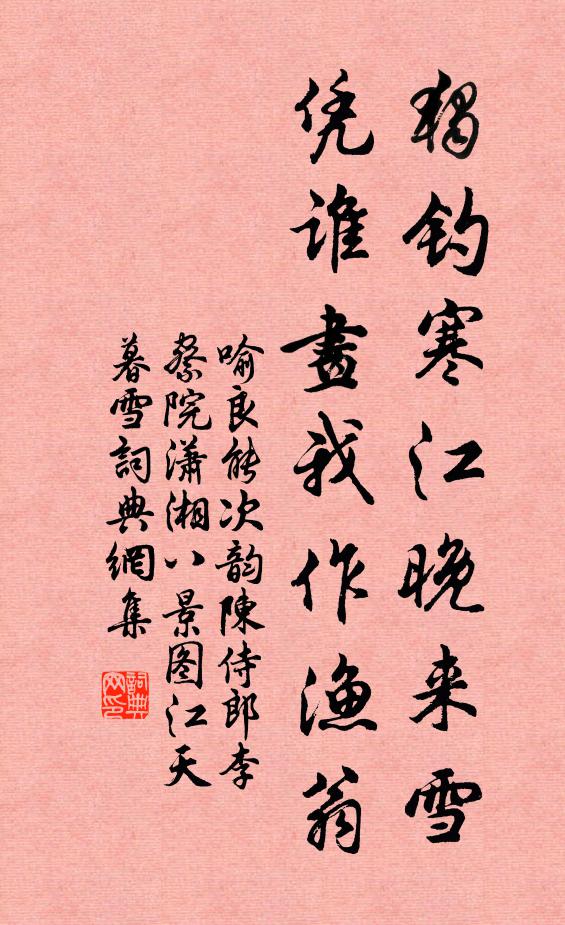 獨釣寒江晚来雪
凭誰畫我作漁翁
喻良能次韵陳侍郎李
察院瀟湘八景图江天
暮雪詞典網集
詞典網印